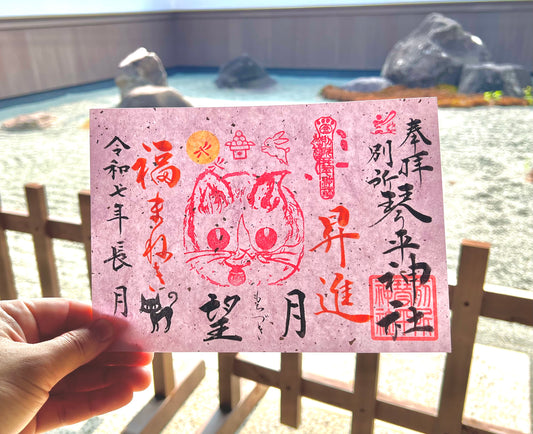 奉拝
別所琴平神社
昇進
月
もちづき
望
福まねき
令和七年長月